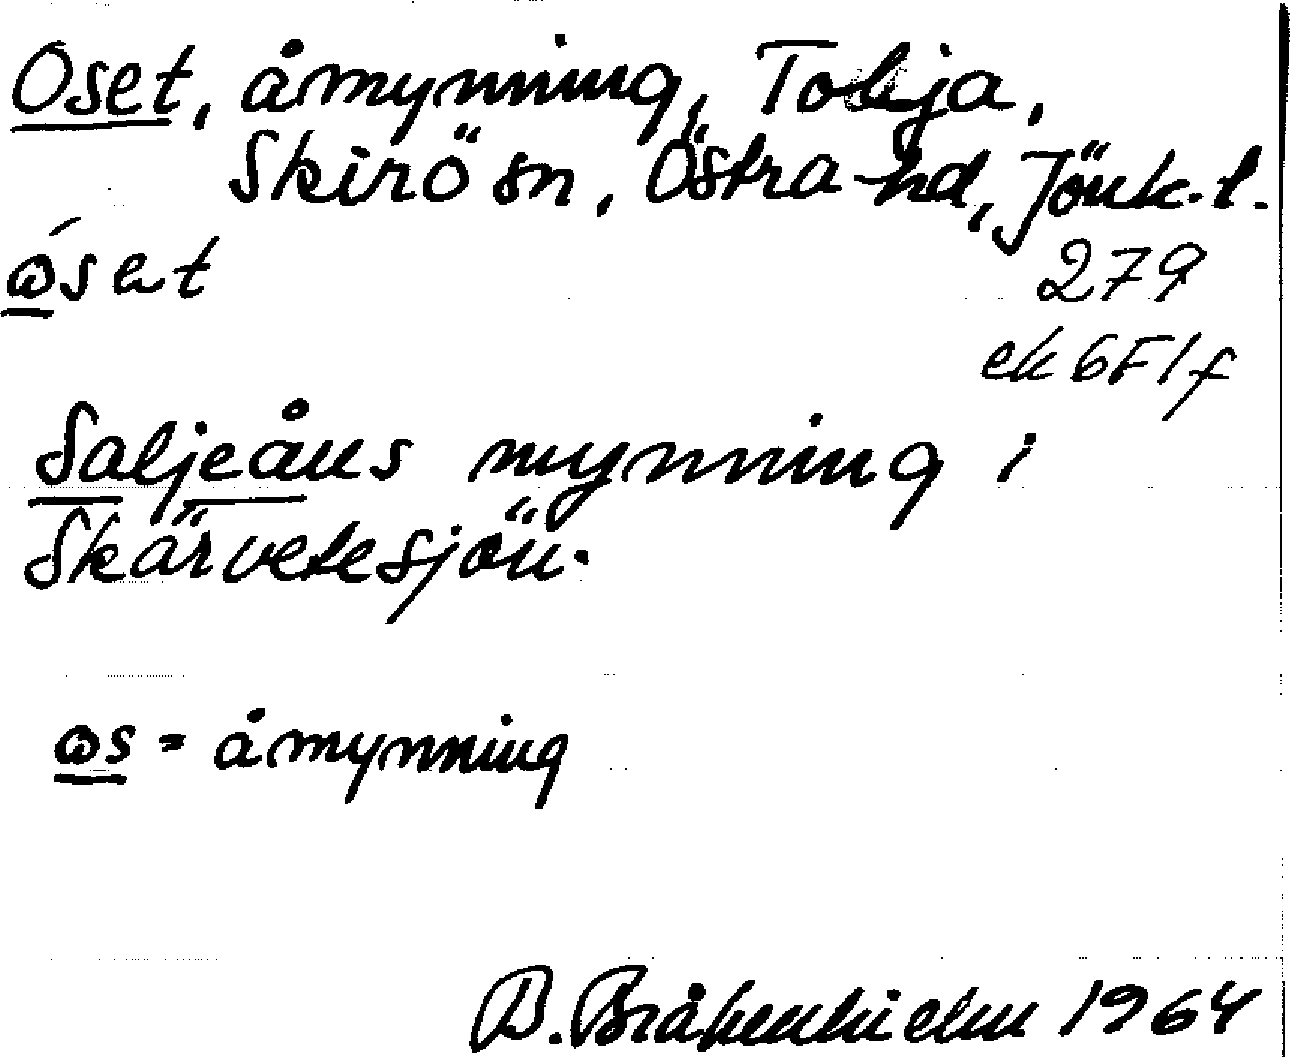 Oset, åmynning, Tobja,
Skirö sn, Östra hd, Jönk. l.
ɷ́set
279
ek 6F1f
Saljeåns mynning i
Skärvetesjön.
ɷs = åmynning
B. Bråkenhielm 1964